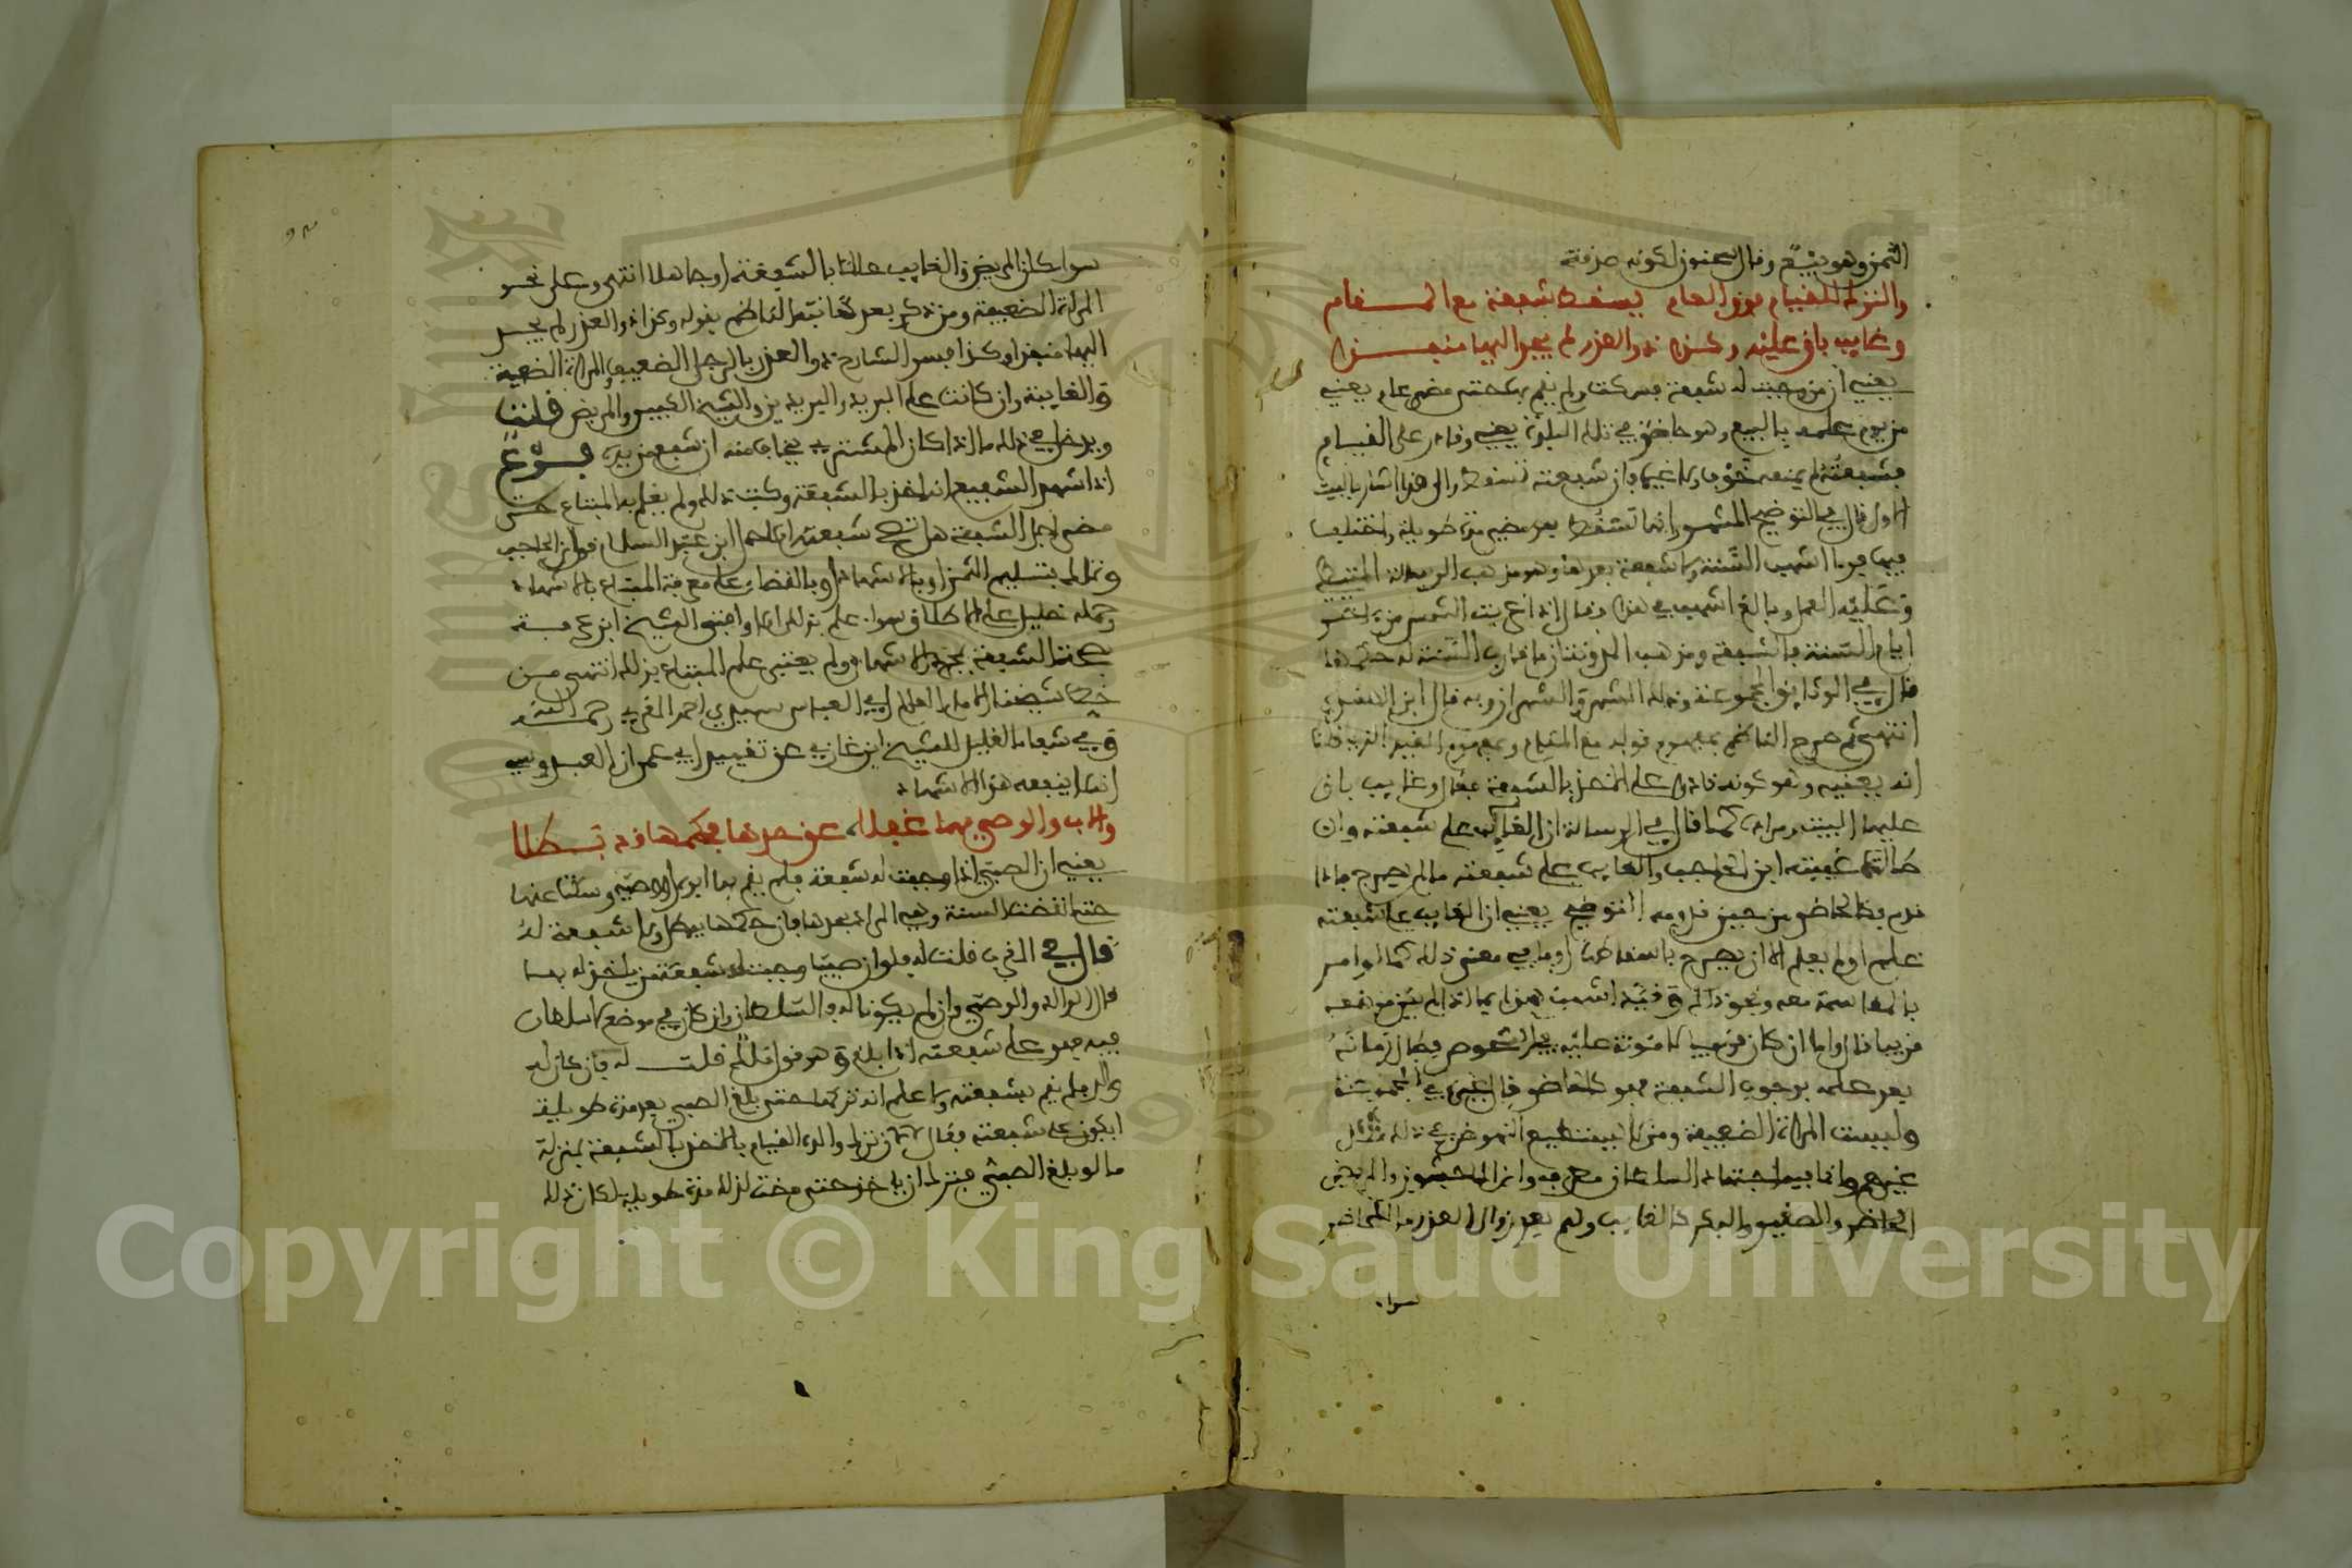 الثمن وهو بيّع وقال سحنون لكونه صدقة
والترك للقيام فوق العام يسقط شفعة مع المقام
وغايب باق عليها وكذا ذو العذر لم يجد اليها منفذا
يعني أن من وجبت له شفعة فسكت ولم يقم بها حتى مضى عام يعني
من يوم علمه بالبيع وهو حاضر في تلك البلدة يعني وقادر على القيام
بشفعته لم يمنعه خوف ولا غيره فإن شفعته تسقط والى هذا اشار بالبيت
الاول قال في التوضيح المشهور انها تسقط بعد مضي مدة طويلة واختلف
فيها فروى اشهب السنة ولا شفعة بعدها وهو مذهب الرسالة المتيطي
وعليه العمل وبالغ اشهب في هذا وقال اذا غربت الشمس من آخر
ايام السنة فلا شفعة ومذهب المدونة ان ما قارب السنة له حكمها
قال في الوثايق المجموعة وذلك الشهر والشهران وبه قال ابن الهندي
انتهى ثم صرح الناظم بمفهوم قوله مع المقام وبمفهوم القيد الذي قلنا
انه يعنيه وهو كونه قادرا على الاخذ بالشفعة فقال وغايب باق
عليها البيت ومراده كما قال في الرسالة ان الغايب على شفعته وان
طالت غيبته ابن الحاجب والغايب على شفعته ما لم يصرح فاذا
قدم فكالحاضر من حين قدومه التوضيح يعني ان الغايب على شفعته
علم او لم يعلم الا ان يصرح باسقاطها او ما في معنى ذلك كما لو امر
بالمقاسمة معه ونحو ذلك وقيّد اشهب هذا بما اذا لم تبن منفعه
قريبا قال واما ان كان قريبا لا مئونة عليه في الشخوص فطال زمانه
بعد علمه بوجوب الشفعة فهو كالحاضر قال غيره في المجموعة
وليست المراة الضعيفة ومن لا يستطيع النهوض في ذلك مثل
غيرهم وانما فيه اجتهاد السلطان مطرف وابن الماجشون والمريض
الحاضر والصغير والبكر كالغايب ولهم بعد زوال العذر ما للحاضر
سواء
سواء كان المريض والغايب عالما بالشفعة او جاهلا انتهى وعلى نحو
المراة الضعيفة ومن ذكر بعدها نبه الناظم بقوله وكذا ذو العذر لم يجد
اليها منفذا وكذا فسر الشارح ذو العذر بالرجل الضعيف والمراة الضعيفة
والغايبة وان كانت على البريد والبريدين والشيخ الكبير والمريض قلت
ويدخل في ذلك ما اذا كان المشتري يخاف منه ان شفع من يده فرع
اذا اشهد الشفيع انه اخذ بالشفعة وكتب ذلك ولم يعلم به المبتاع حتى
مضى اجل الشفعة هل تصح شفعته ام لا حمل ابن عبد السلام قول ابن الحاجب
وتملك بتسليم الثمن او بالاشهاد او بالقضاء على معرفة المبتاع بالاشهاد
وحمله خليل على الاطلاق سواء علم بذلك ام لا وافتى الشيخ ابن عرفة
بصحة الشفعة بمجرد الاشهاد ولم يعتبر علم المبتاع بذلك انتهى من
خط شيخنا الامام العالم ابي العباس سيدي احمد المقري رحمه الله
وفي شفاء الغليل للشيخ ابن غازي عن تقييد ابي عمران العبدوسي
انه لا ينفعه هذا الاشهاد
والاب والوصي مهما غفلا عن حدها فحكمها قد بطلا
يعني ان الصبي اذا وجبت له شفعة فلم يقم بها ابوه او وصيه وسكتا عنها
حتى انقضت السنة وهي المراد بحدها فان حكمها يبطل ولا شفعة له
قال في المقرب قلت له فلو ان صبيا وجبت له شفعة من ياخذ له بها
قال الوالد والوصي وان لم يكونا له فالسلطان وان كان في موضع لا سلطان
فيه فهو على شفعته اذا بلغ وهو قول مالك قلت له فان كان له
والد فلم يقم بشفعته ولا علم انه تركها حتى بلغ الصبي بعد مدة طويلة
ايكون على شفعته فقال لا لان ترك والده القيام بالاخذ بالشفعة بمنزلة
ما لو بلغ الصبي فترك ان ياخذ حتى مضت لذلك مدة طويلة لكان ذلك